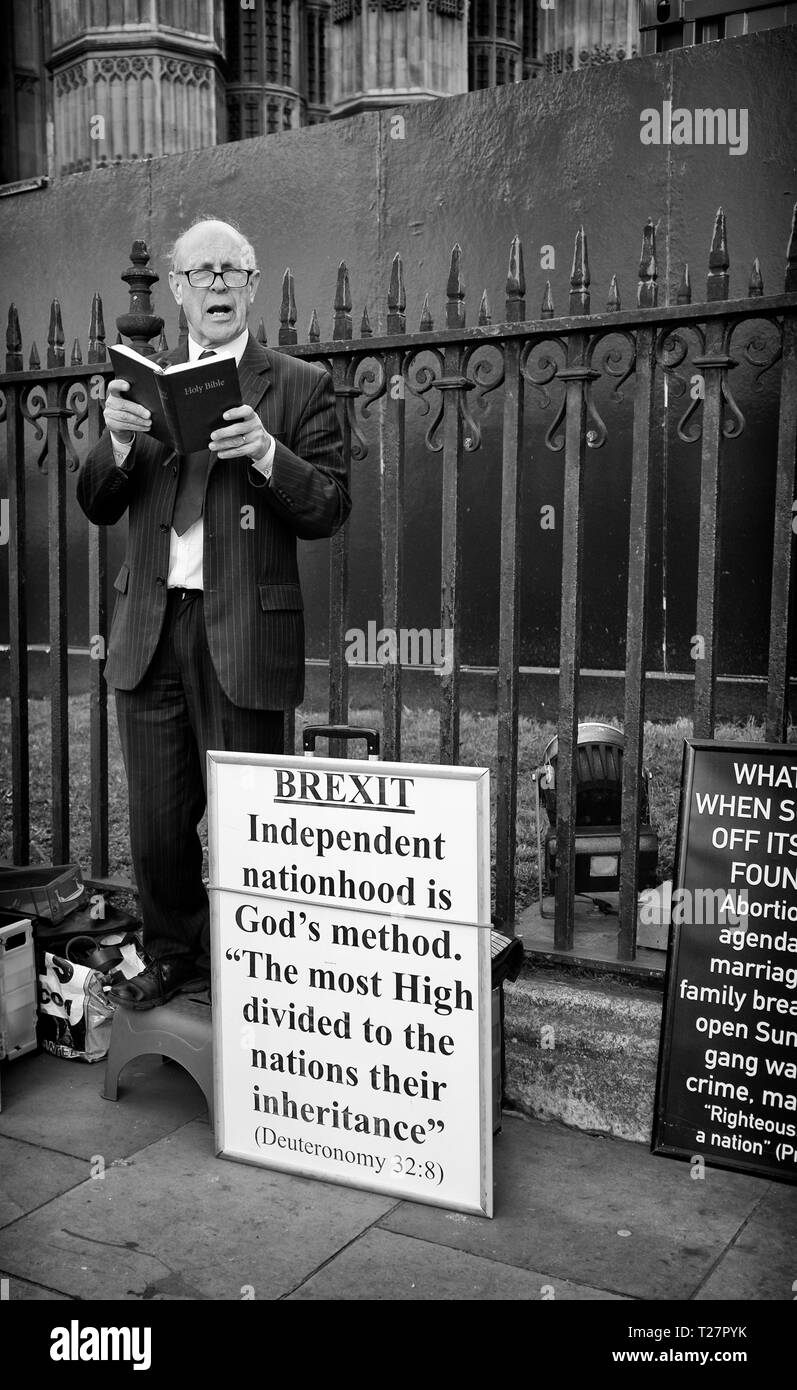 Holy Bible
BREXIT
Independent
nationhood is
God's method.
“The most High
divided to the
nations their
inheritance”
(Deuteronomy 32:8)
WHAT
WHEN S
OFF ITS
FOUN
Abortio
agenda
marriag
family brea
open Sun
gang wa
crime, ma
“Righteous
a nation” (Pr
a
alamy
alamy
Image ID: T27PYK
www.alamy.com